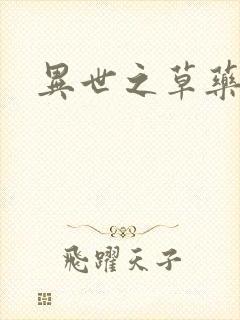 異世之草藥
飛躍天子